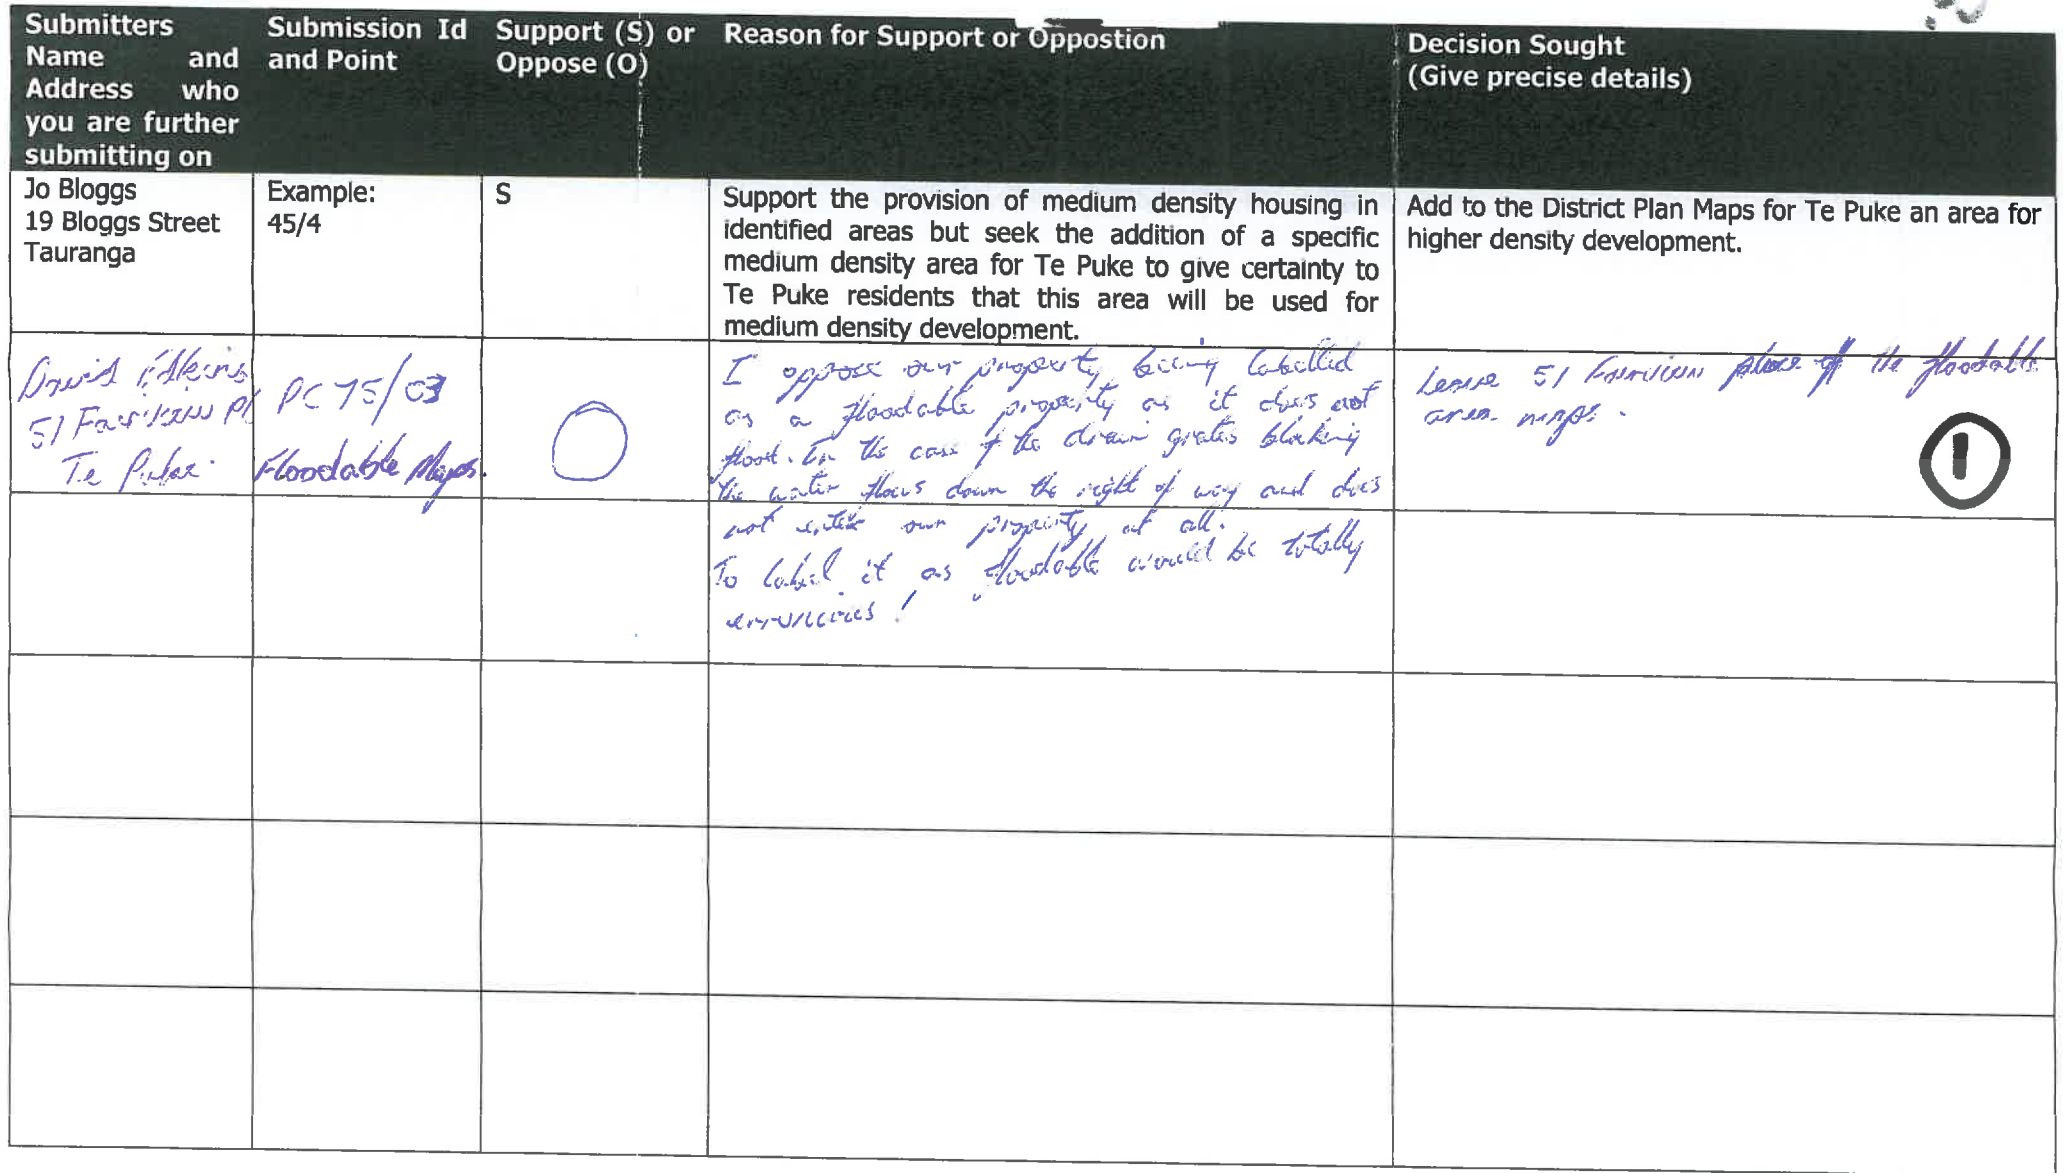 Submitters
Name and
Address who
you are further
submitting on
Submission Id
and Point
Support (S) or
Oppose (O)
Reason for Support or Oppostion
Decision Sought
(Give precise details)
Jo Bloggs
19 Bloggs Street
Tauranga
Example:
45/4
S
Support the provision of medium density housing in
identified areas but seek the addition of a specific
medium density area for Te Puke to give certainty to
Te Puke residents that this area will be used for
medium density development.
Add to the District Plan Maps for Te Puke an area for
higher density development.
David
51 Fairview Pl
Te Puke.
PC 75/03
Floodable Maps.
O
I oppose our property being labelled
as a floodable property as it does not
flood. In the case of the drain grates blocking
the water flows down the right of way and does
not enter our property at all.
To label it as floodable would be totally
!
Leave 51 Fairview place off the floodable
area maps.
1